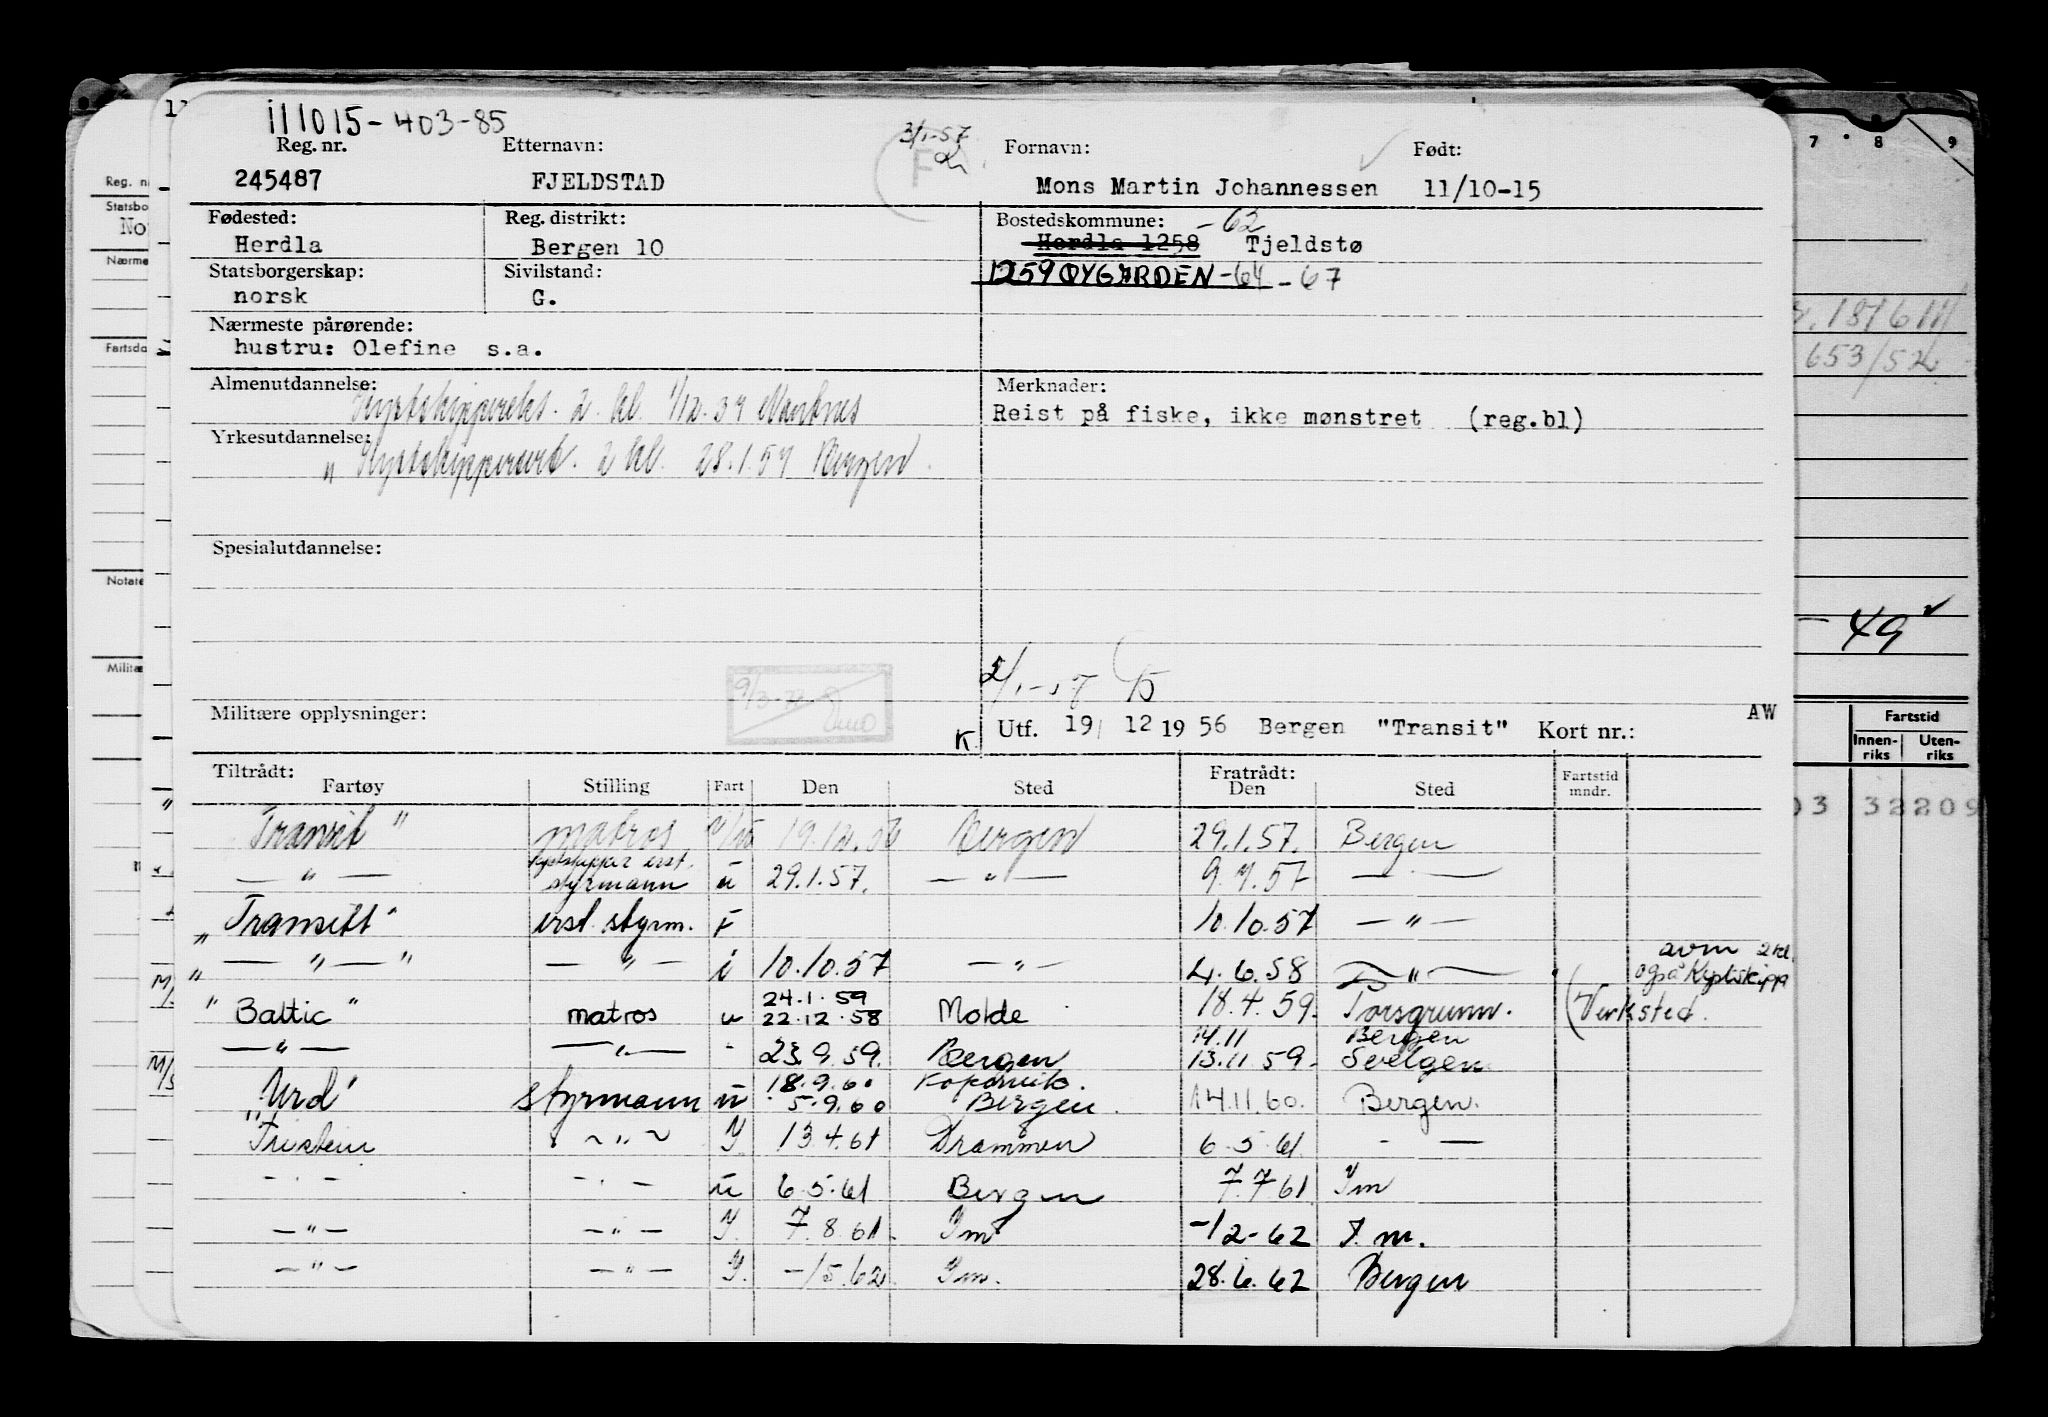 111015-403-85
Reg. nr. Etternavn: 3/1-57 Fornavn: Født:
245487 FJELDSTAD Mons Martin Johannessen 11/10-15
Fødested: Reg. distrikt: Bostedskommune: -62
Herdla Bergen 10 Herdla 1258 Tjeldstø
Statsborgerskap: Sivilstand: 1259 ØYGARDEN -64 -67
norsk G.
Nærmeste pårørende:
hustru: Olefine s.a.
Almenutdannelse: Merknader:
2. kl. Reist på fiske, ikke mønstret (reg.bl)
Yrkesutdannelse:
" 2 kl. 28.1.57 Bergen.
Spesialutdannelse:
Militære opplysninger: K. Utf. 19/ 12 19 56 Bergen "Transit" Kort nr.: AW
Tiltrådt: Fratrådt: Fartstid
Fartøy Stilling Fart Den Sted Den Sted mndr.
Transit" matros 19.12.56 Bergen 29.1.57. Bergen
— " — styrmann u 29.1.57. — " — 9.7.57 — —
"Transitt" erst. styrm. F 10.10.57 — " —
" — " — " — " — i 10.10.57 — " — 4.6.58 — " — avm 2 kl.
også Kystskipp
24.1.59
"Baltic" matros u 22.12.58 Molde 18.4.59. Porsgrunn. (Verksted.
14.11 Bergen
— " — — " — " 23.9.59. Bergen 13.11.59. Svelgen
18.9.60 Kopervik.
"Urd" styrmann u 5.9.60 Bergen. 14.11.60. Bergen.
Tristein ~ " ~ Y. 13.4.61 Drammen 6.5.61. - —
- . - - . - u 6.5.61 Bergen 7.7.61 Ym
— " — — " — Y. 7.8.61. Ym -12-62 I m.
— " — — " — Y. -15.62. Ym. 28.6.62 Bergen
Reg. n
Statsbo
No
Nærme
Fartsda
Notate
Militæ
7 8 9
653/52
- 49
Fartstid
Innen-
riks Uten-
riks
03 32209